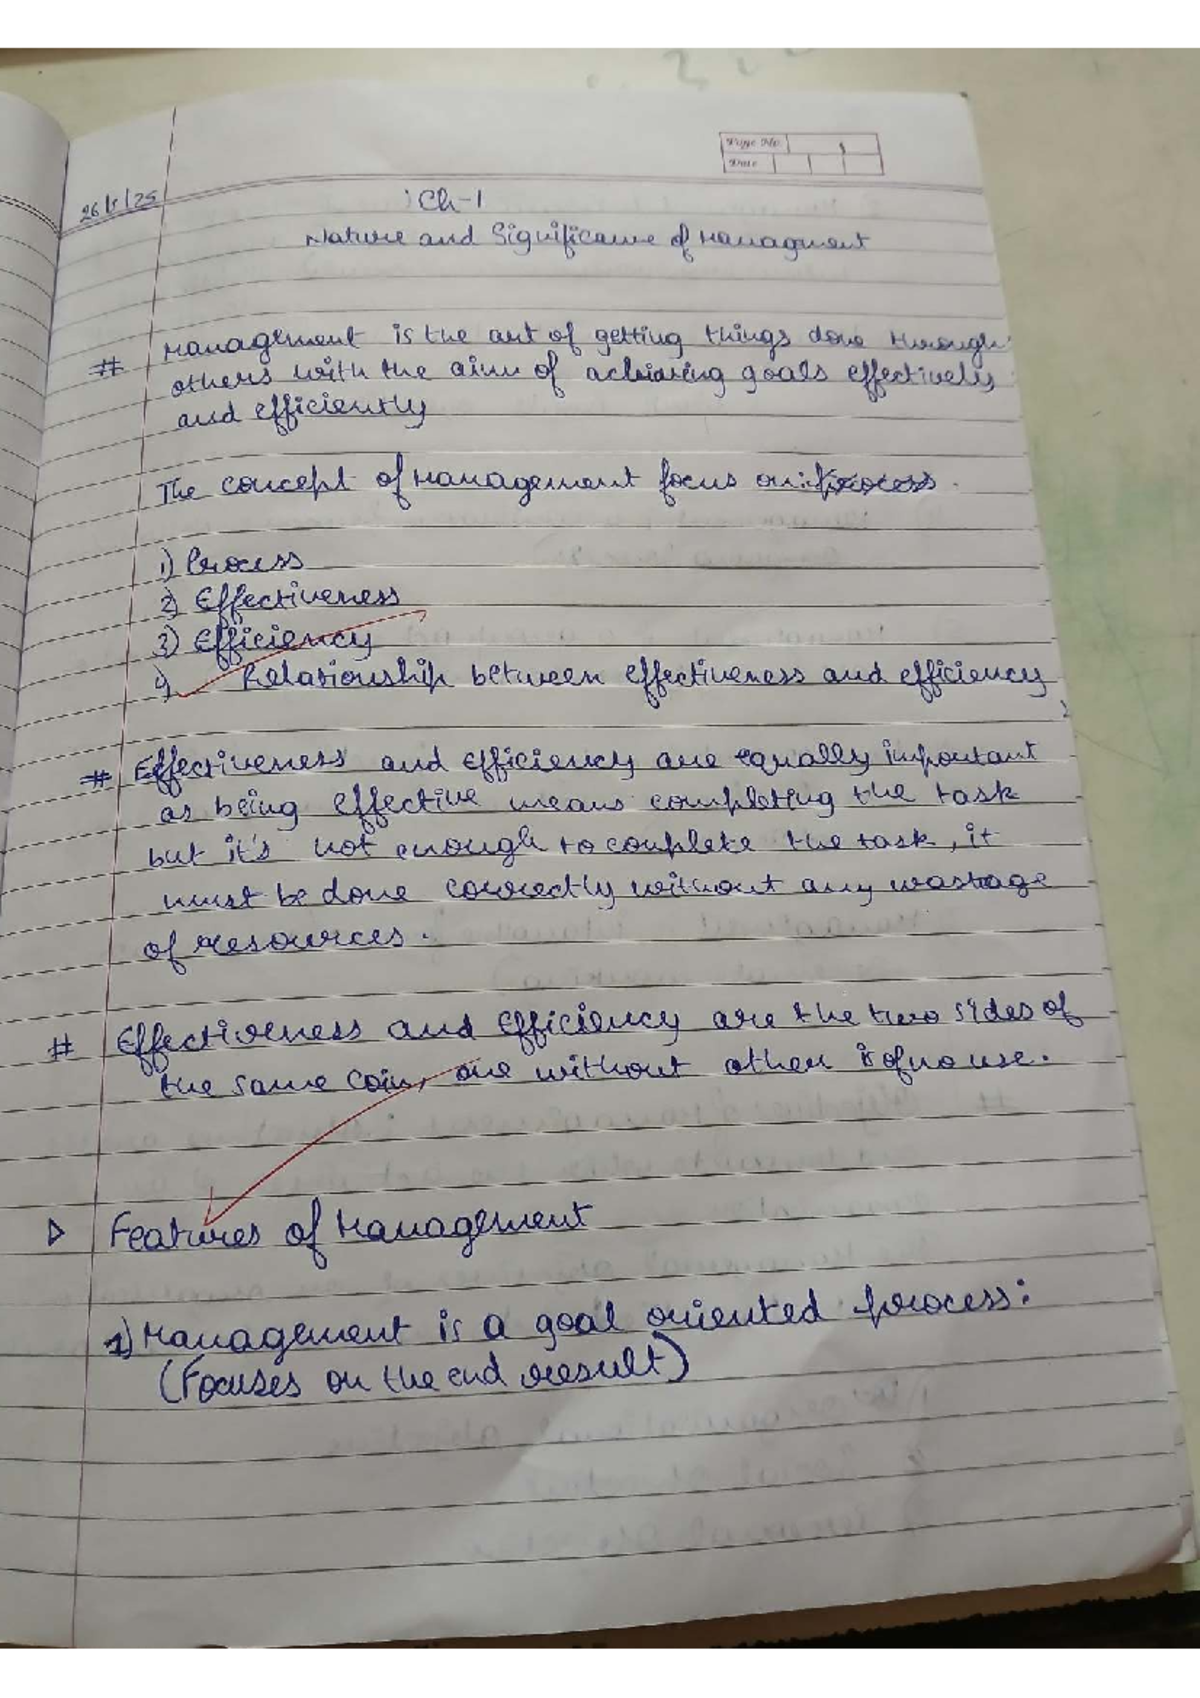 Page No.
Date
26/5/25
Ch-1
Nature and Significance of Managment
# Management is the art of getting things done through
others with the aim of achieving goals effectively
and efficiently
The concept of Management focus on:
1) Process
2) Effectiveness
3) Efficiency
4) Relationship between effectiveness and efficiency
# Effectiveness and efficiency are equally important
as being effective means completing the task
but it's not enough to complete the task, it
must be done correctly without any wastage
of resources.
# Effectiveness and Efficiency are the two sides of
the same coin, one without other is of no use.
▷ Features of Management
1) Management is a goal oriented process:
(Focuses on the end result)